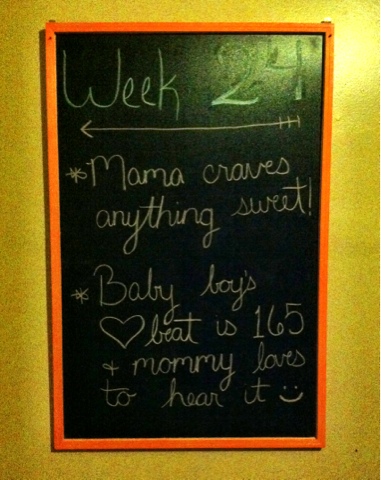 Week 24
*Mama craves
anything sweet!
*Baby boy's
♡beat is 165
+ mommy loves
to hear it :)